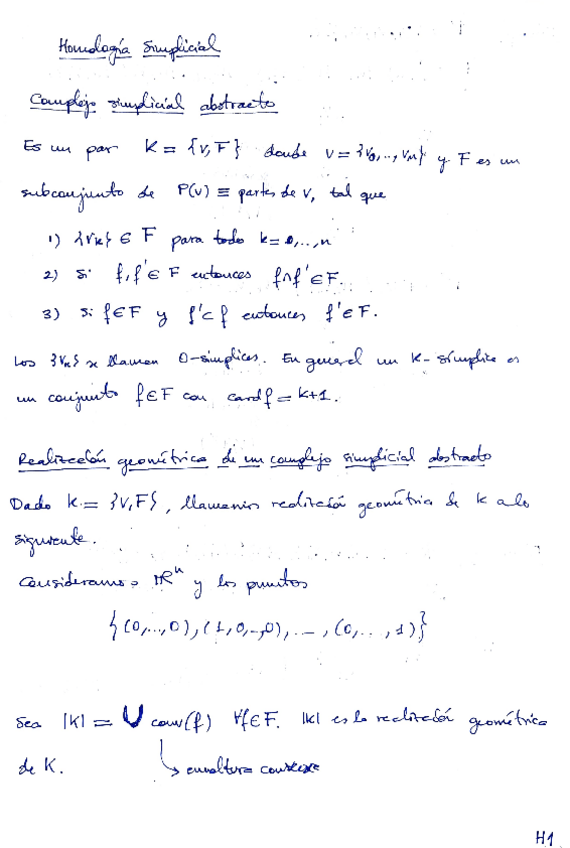 Homología Simplicial
Complejo simplicial abstracto
Es un par K = {V,F} donde V = {v₀,..,vₙ} y F es un
subconjunto de P(V) ≡ partes de V, tal que
1) {vₖ} ∈ F para todo k=0,..,n
2) Si f,f' ∈ F entonces f∩f' ∈ F.
3) Si f∈F y f'⊂f entonces f'∈F.
Los {vₖ} se llaman 0-simplices. En general un K-simplice es
un conjunto f∈F con card f = K+1.
Realización geométrica de un complejo simplicial abstracto
Dado K = {V,F}, llamamos realización geométrica de K a lo
siguiente.
Consideramos ℝⁿ y los puntos
{(0,...,0),(1,0,..,0),...,(0,..,1)}
Sea |K| = ∪ conv(f) ∀f∈F. |K| es la realización geométrica
de K. ↳ envoltura convexa
H1